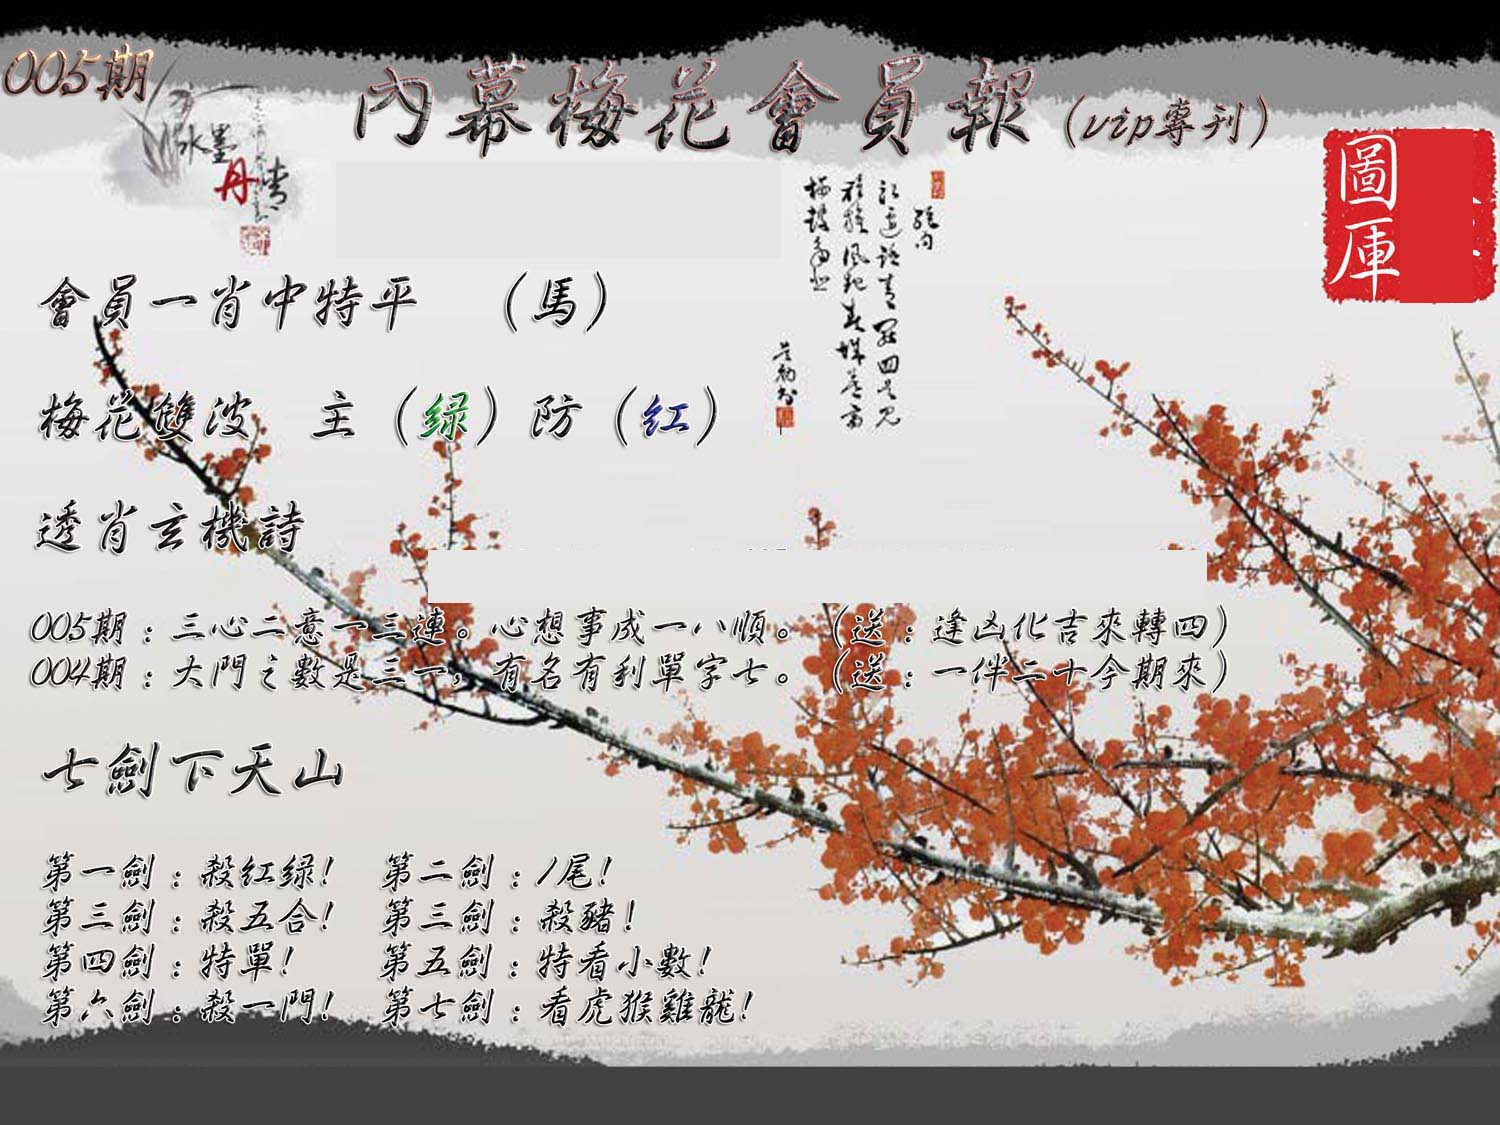 005期
內幕梅花會員報(vip專刊)
水墨
丹青
圖庫
會員一肖中特平 (馬)
梅花雙波 主(绿)防(红)
透肖玄機詩
005期:三心二意一三連。心想事成一八順。(送:逢凶化吉來轉四)
004期:大門之數是三一,有名有利單字七。(送:一伴二十今期來)
七劍下天山
第一劍:殺红绿! 第二劍:1尾!
第三劍:殺五合! 第三劍:殺豬!
第四劍:特單! 第五劍:特看小數!
第六劍:殺一門! 第七劍:看虎猴雞龍!